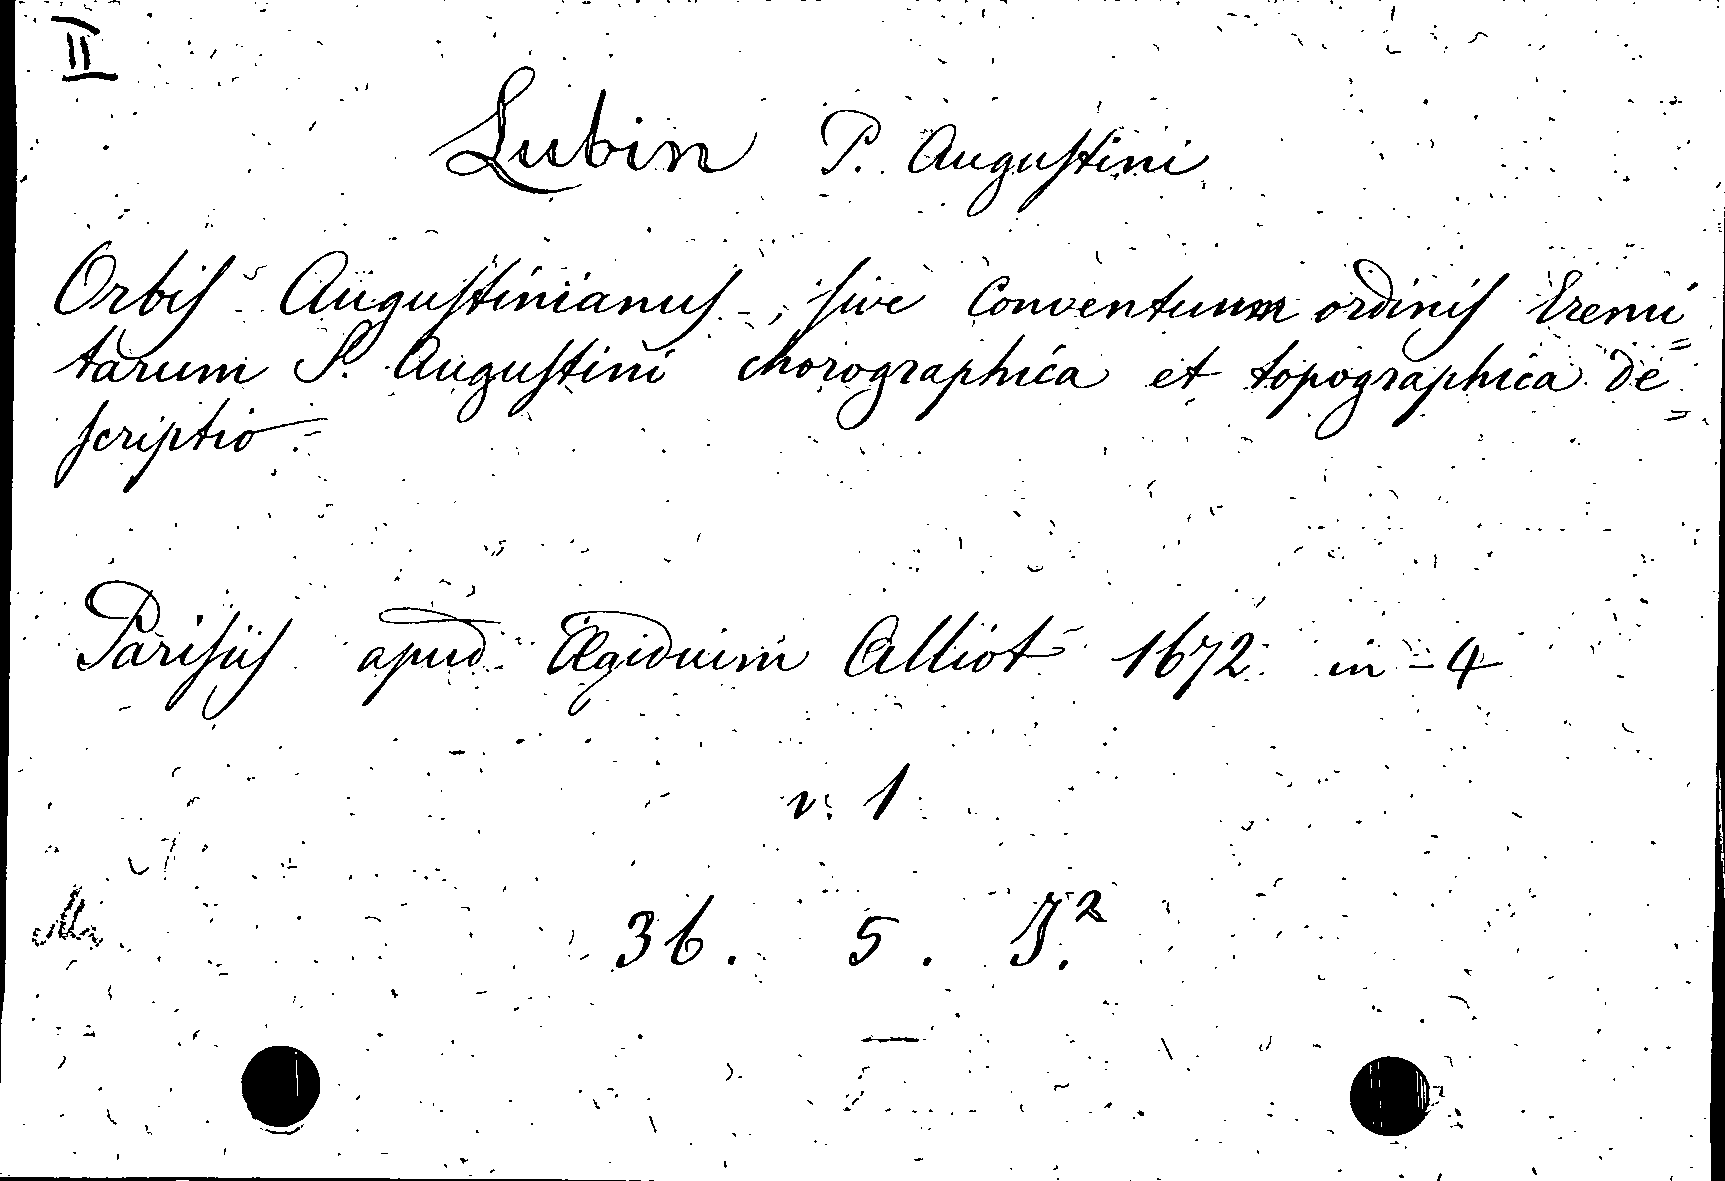 II
Lubin P. Augustini
Orbis Augustinianus, sive Conventuum ordinis Eremi=
tarum S. Augustini chorographica et topographica de=
scriptio
Parisiis apud Ægidium Alliot 1672 in-4
v. 1
36. 5. J.²